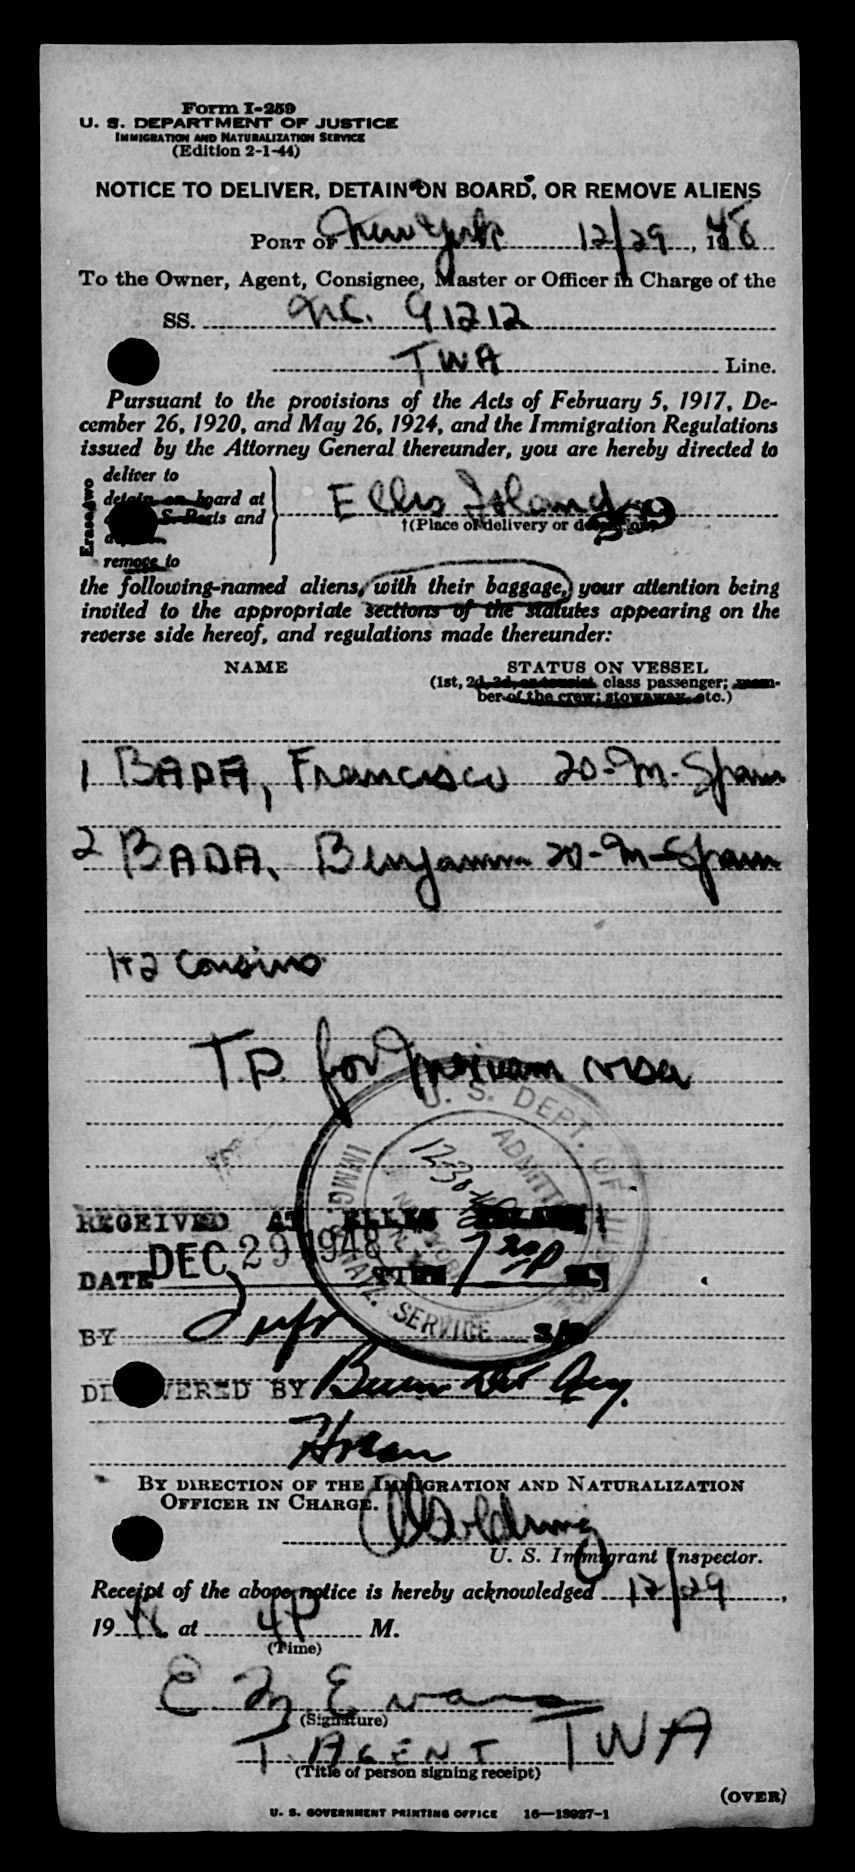 Form I-259
U. S. DEPARTMENT OF JUSTICE
IMMIGRATION AND NATURALIZATION SERVICE
(Edition 2-1-44)
NOTICE TO DELIVER, DETAIN ON BOARD, OR REMOVE ALIENS
PORT OF New York 12/29, 1948
To the Owner, Agent, Consignee, Master or Officer in Charge of the
SS. NC. 91212
TWA Line.
Pursuant to the provisions of the Acts of February 5, 1917, De-
cember 26, 1920, and May 26, 1924, and the Immigration Regulations
issued by the Attorney General thereunder, you are hereby directed to
Erase two
deliver to
detain on board at
U. S. Regis and
remove to
Ellis Island
†(Place of delivery or detention) 359
the following-named aliens, with their baggage, your attention being
invited to the appropriate sections of the statutes appearing on the
reverse side hereof, and regulations made thereunder:
NAME STATUS ON VESSEL
(1st, 2d, 3d, or tourist class passenger; mem-
ber of the crew; stowaway, etc.)
1 BADA, Francisco 20-M-Spain
2 BADA, Benjamin 20-M-Spain
1+2 cousins
T.P. for Mexican visa
U. S. DEPT. OF JUSTICE
IMMIG. & NATZ. SERVICE
ADMITTED
NEW YORK, N.Y.
12-30-48
RECEIVED AT ELLIS ISLAND
DATE DEC 29 1948 TIME 7 20 P M.
BY
DELIVERED BY
By DIRECTION OF THE IMMIGRATION AND NATURALIZATION
OFFICER IN CHARGE.
U. S. Immigrant Inspector.
Receipt of the above notice is hereby acknowledged 12/29,
1948 at 4 P M.
(Time)
E M Evans
(Signature)
T. AGENT TWA
(Title of person signing receipt)
(OVER)
U. S. GOVERNMENT PRINTING OFFICE 16—13927-1